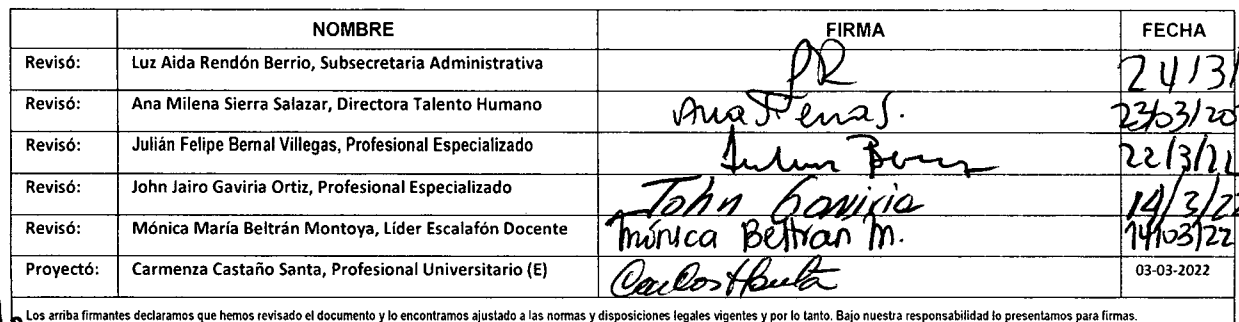 NOMBRE FIRMA FECHA
Revisó: Luz Aida Rendón Berrio, Subsecretaria Administrativa 24/3/
Revisó: Ana Milena Sierra Salazar, Directora Talento Humano 23/03/20
Revisó: Julián Felipe Bernal Villegas, Profesional Especializado 22/3/22
Revisó: John Jairo Gaviria Ortiz, Profesional Especializado John Gaviria 14/3/22
Revisó: Mónica María Beltrán Montoya, Líder Escalafón Docente Mónica Beltran M. 14/03/22
Proyectó: Carmenza Castaño Santa, Profesional Universitario (E) 03-03-2022
Los arriba firmantes declaramos que hemos revisado el documento y lo encontramos ajustado a las normas y disposiciones legales vigentes y por lo tanto. Bajo nuestra responsabilidad lo presentamos para firmas.